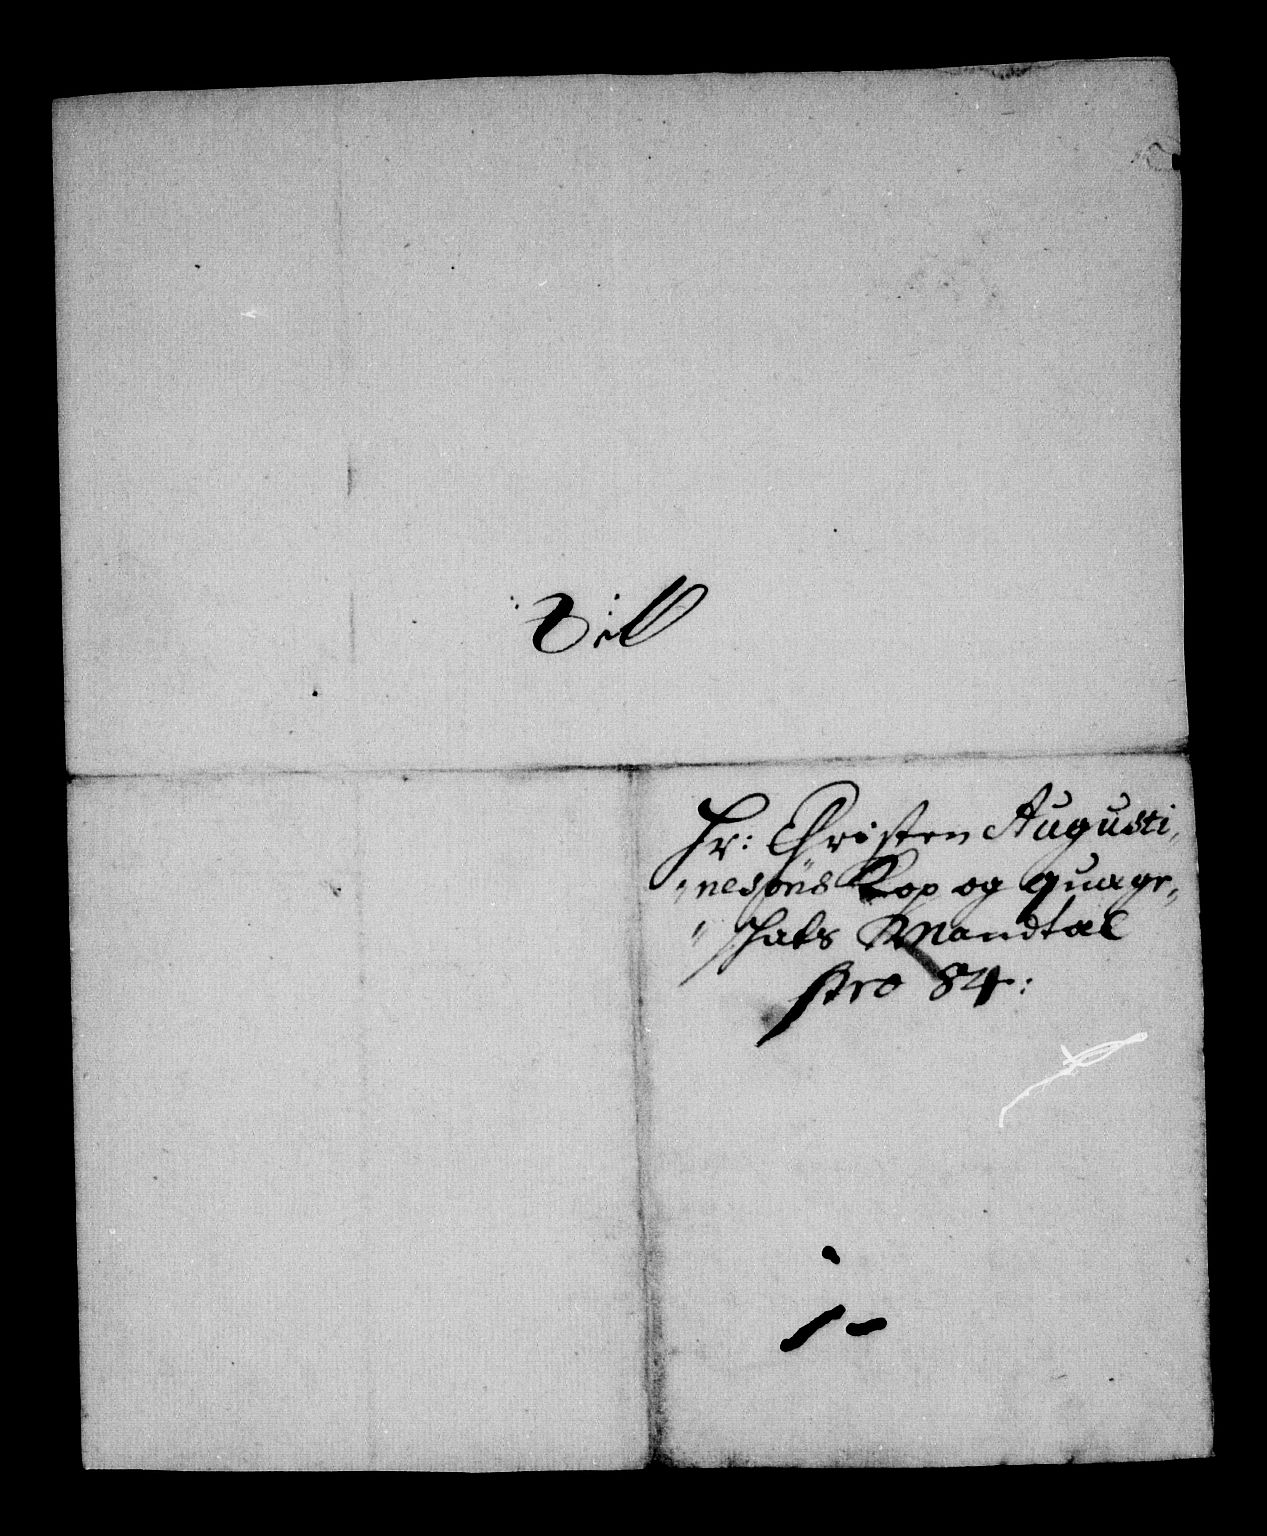 Till
Hr: Christen Augusti„
„nesøns Kop og quægs„
„schats Mandtal
pro 84:
1-